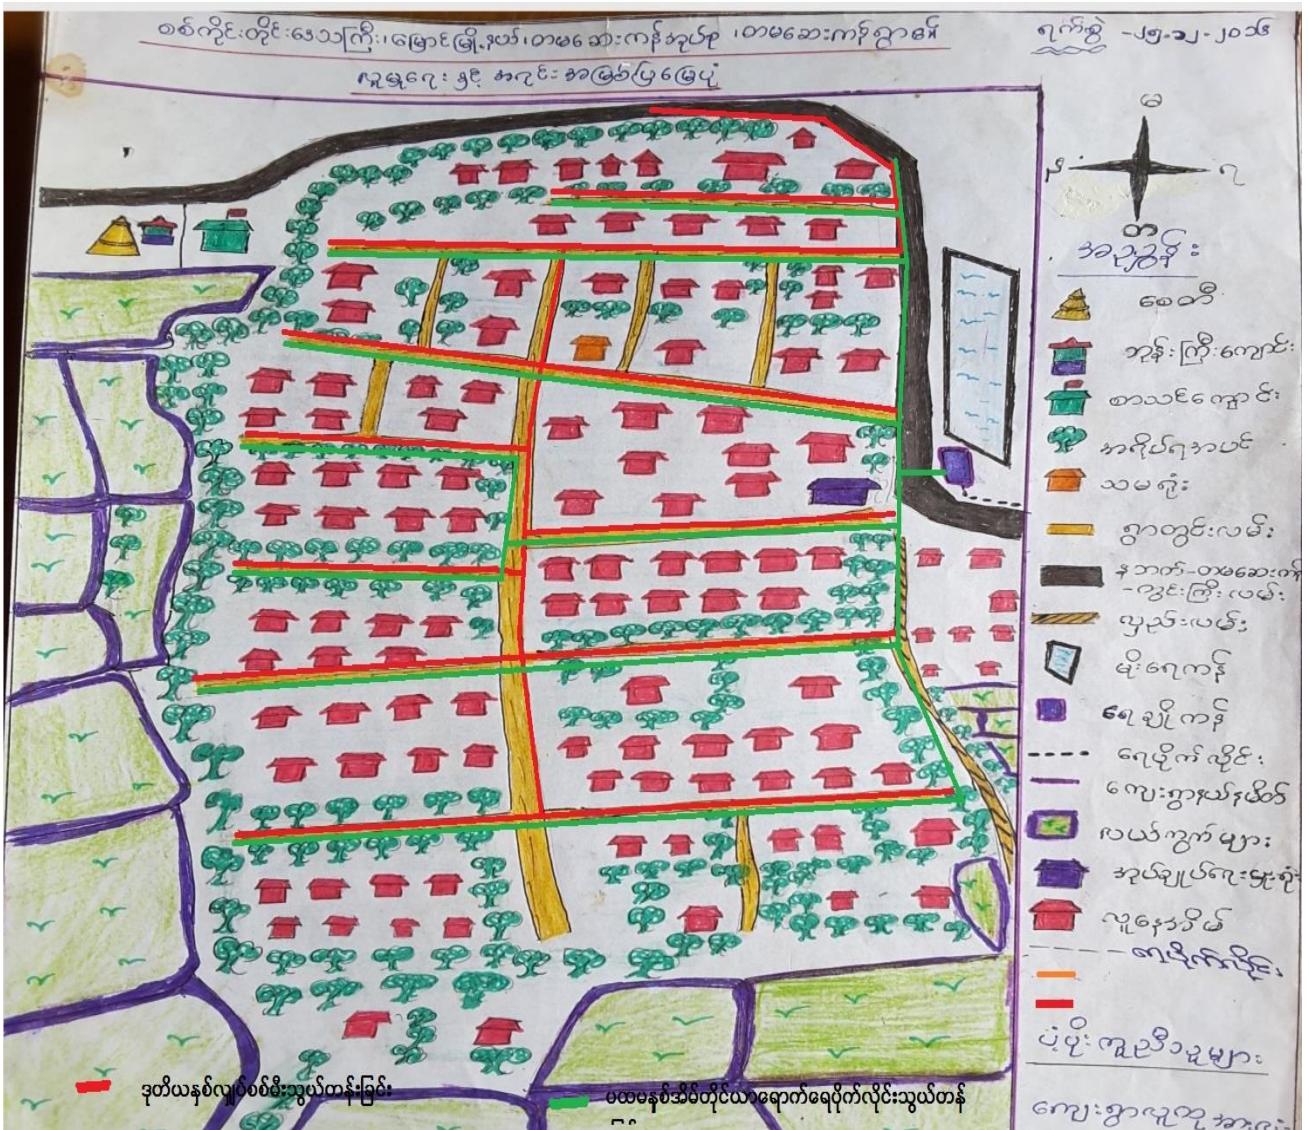 စစ်ကိုင်းတိုင်းဒေသကြီး၊မြောင်မြို့နယ်၊တမဆေးကန်အုပ်စု ၊တမဆေးကန်ရွာ၏
ရက်စွဲ -၂၅-၁၂-၂၀၁၆
လူမှုရေး နှင့် အရင်းအမြစ်ပြမြေပုံ
မ
ရ
တ
အညွှန်း
စေတီ
ဘုန်းကြီးကျောင်း
စာသင်ကျောင်း
အရိပ်ရအပင်
သမရုံး
ရွာတွင်းလမ်း
နဘက်-တမဆေးကန်
-ကွင်းကြီးလမ်း
လှည်းလမ်း
မိုးရေကန်
ရေချိုကန်
ရေပိုက်လိုင်း
ကျေးရွာနယ်နမိတ်
လယ်ကွက်များ
အုပ်ချုပ်ရေးမှူးရုံး
လူနေအိမ်
ရေပိုက်လိုင်း
ပံ့ပိုးကူညီသူများ
ဒုတိယနှစ်လျှပ်စစ်မီးသွယ်တန်းခြင်း
ပထမနှစ်အိမ်တိုင်ယာရောက်ရေပိုက်လိုင်းသွယ်တန်
ကျေးရွာလူထု